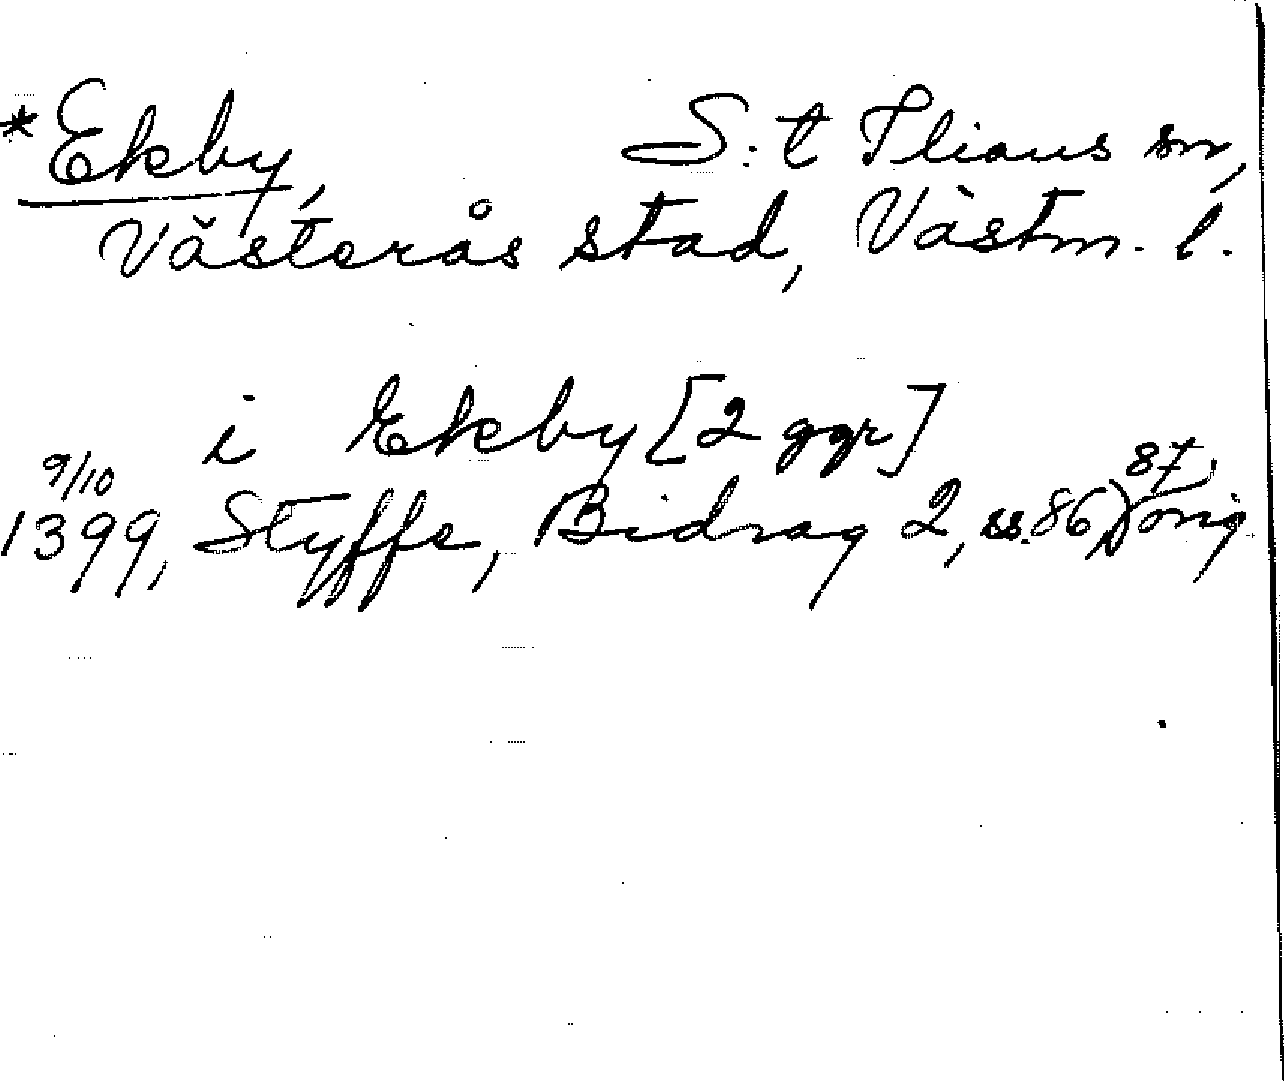 *Ekby, S:t Ilians sn,
Västerås stad, Västm. l.
i Ekby [2 ggr]
9/10
1399, Styffe, Bidrag 2, ss. 86, 87, orig.